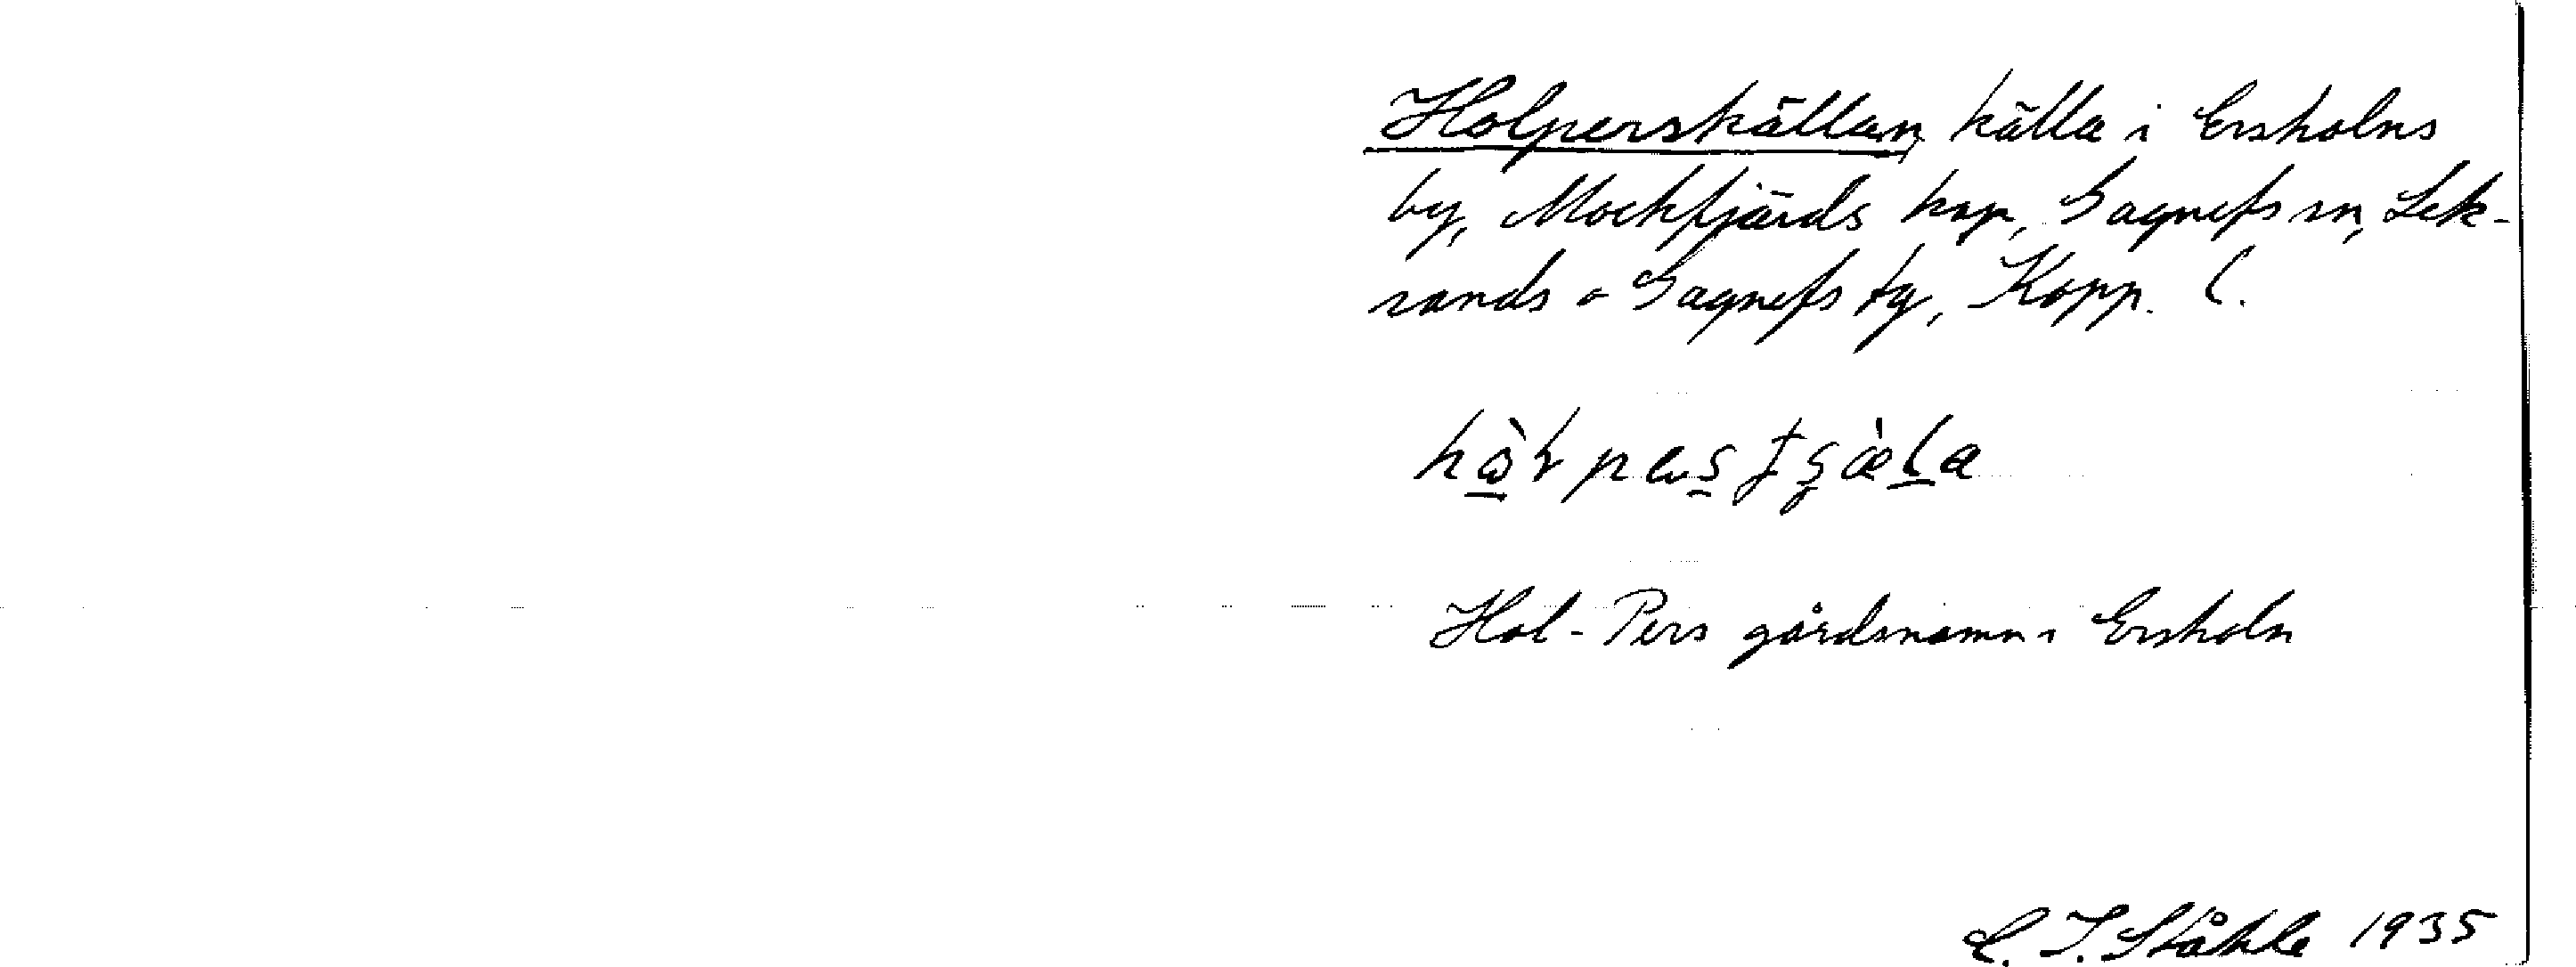 Holperskällan, källa i Ersholns
by, Mockfjärds kap, Gagnefs sn, Lek-
sands o Gagnefs tg, Kopp. l.
Hol-Pers gårdsnamn i Ersholn
C. I. Ståhle 1935